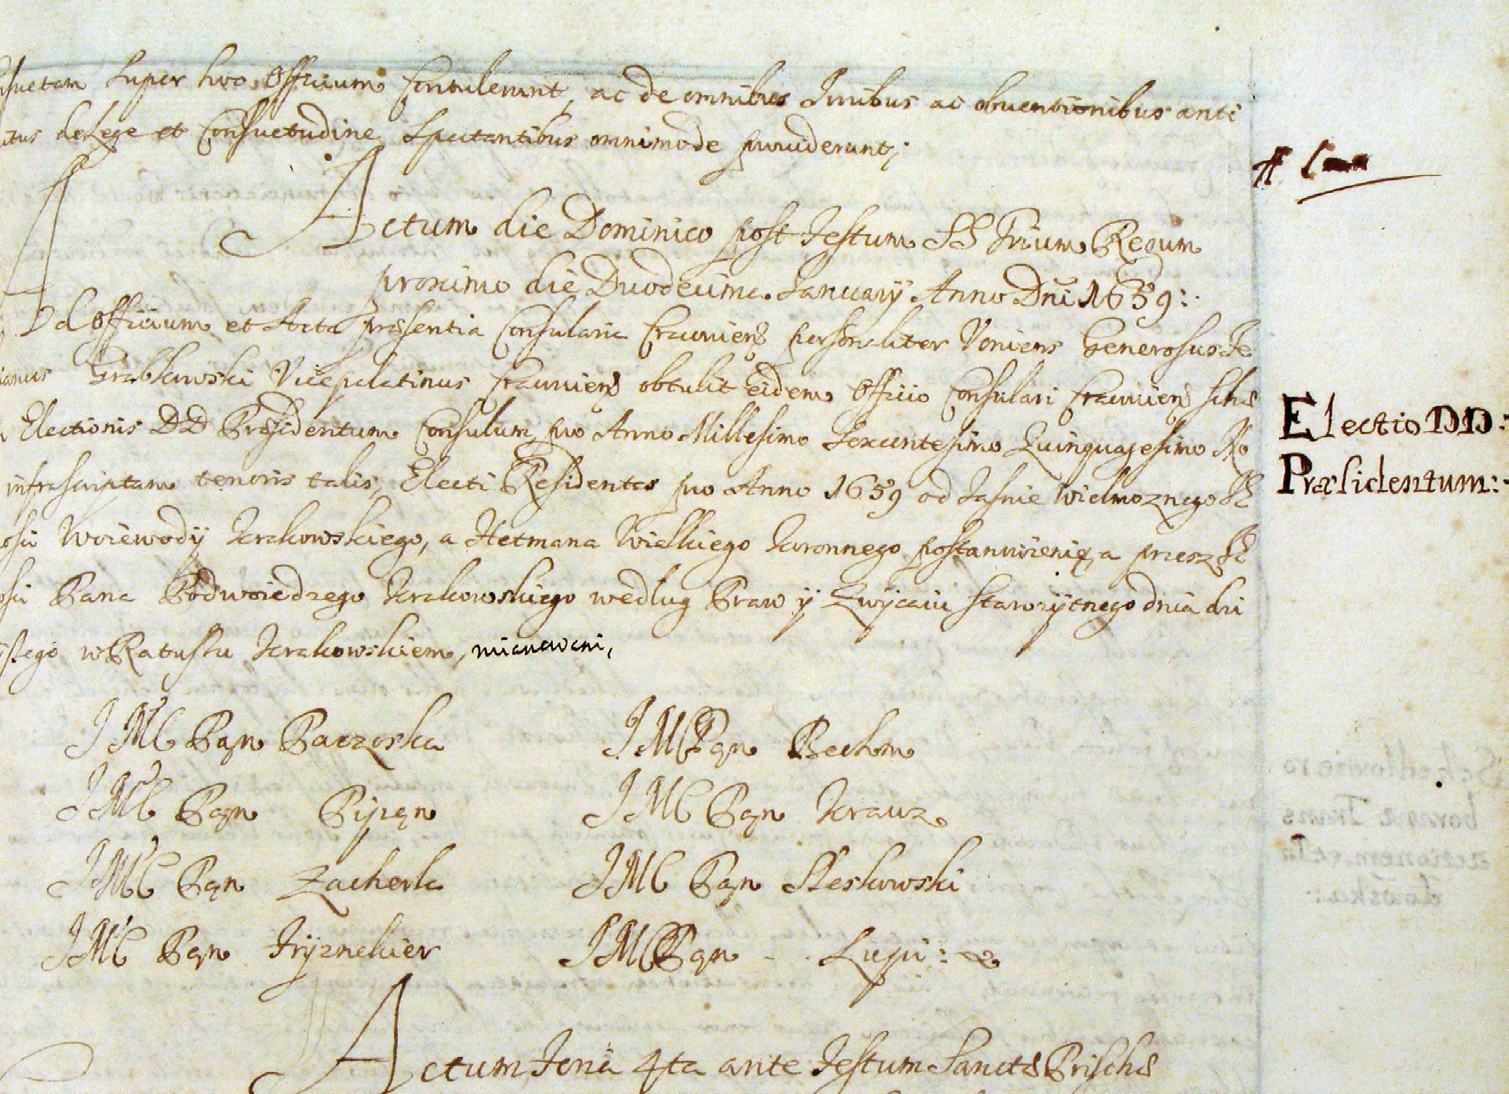 super hoc Officium contulerunt, ac de omnibus Juribus ac obventionibus anti
itus de Lege et Consuetudine spectantibus omnimode providerunt;
Actum die Dominico post Festum SS Trium Regum
proximo die Duodecima January Anno Dni 1659:
Ad Officium et Acta præsentia Consularia Cracoviens personaliter Veniens Generosus Se
Grabkowski Vicepalatinus Cracoviens obtulit eidem Officio Consulari Cracoviens
Electionis DD Præsidentum Consulum pro Anno Millesimo Sexcentesimo Quinquagesimo No
infrascriptam tenoris talis, Electi Residentes pro Anno 1659 od Jasnie Wielmoznego
Woiewody Krakowskiego, a Hetmana Wielkiego Koronnego postanowieni, a przez
Pana Podwoiedzego Krakowskiego według Praw y Zwyczaiu starozytnego dnia dzi
w Ratuszu Krakowskiem, mianowani,
JMC Pan Paczoska
JMC Pan Bechm
JMC Pan Pipan
JMC Pan Krauz
JMC Pan Zacherla
JMC Pan Słeskowski
JMC Pan Fryznekier
JMC Pan - . Lupi:
Actum Feria 4ta ante Festum Sanctæ Priscæ
Electio DD:
Præsidentum: